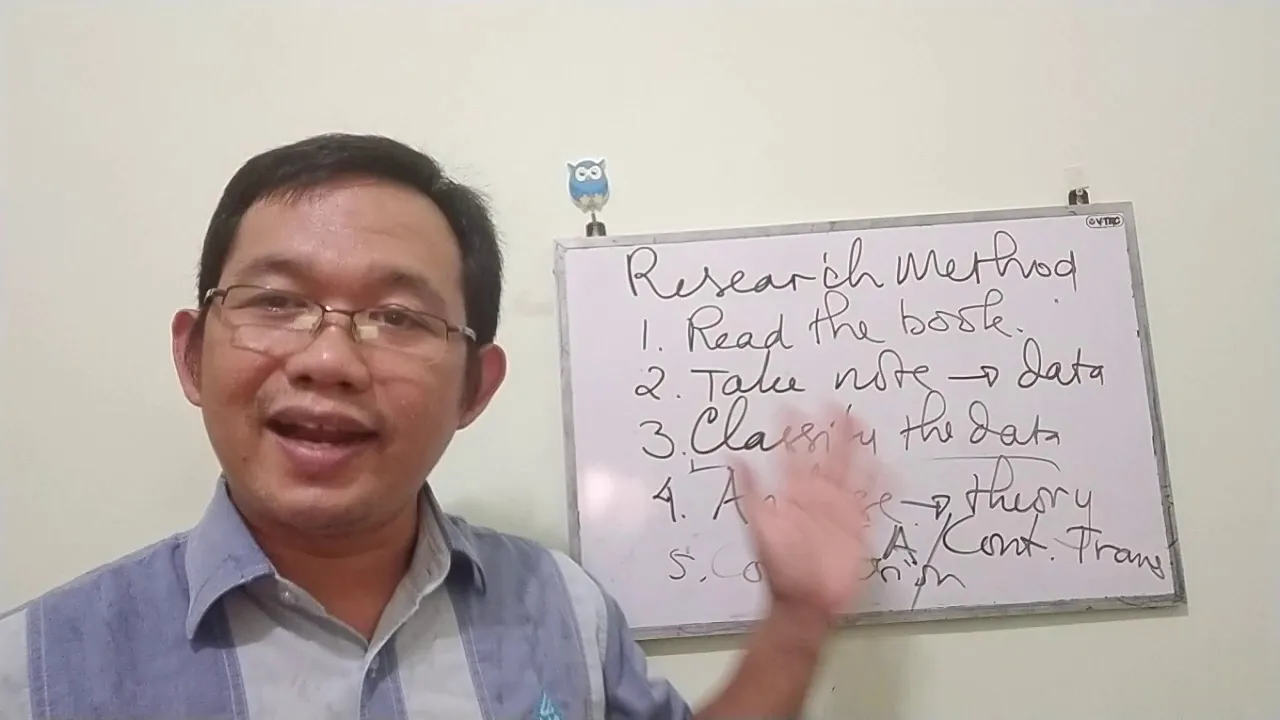 Research Method
1. Read the book.
2. Take note → data
3. Classify the data
4. → theory
A / Cont. Trans
5.
VTEC